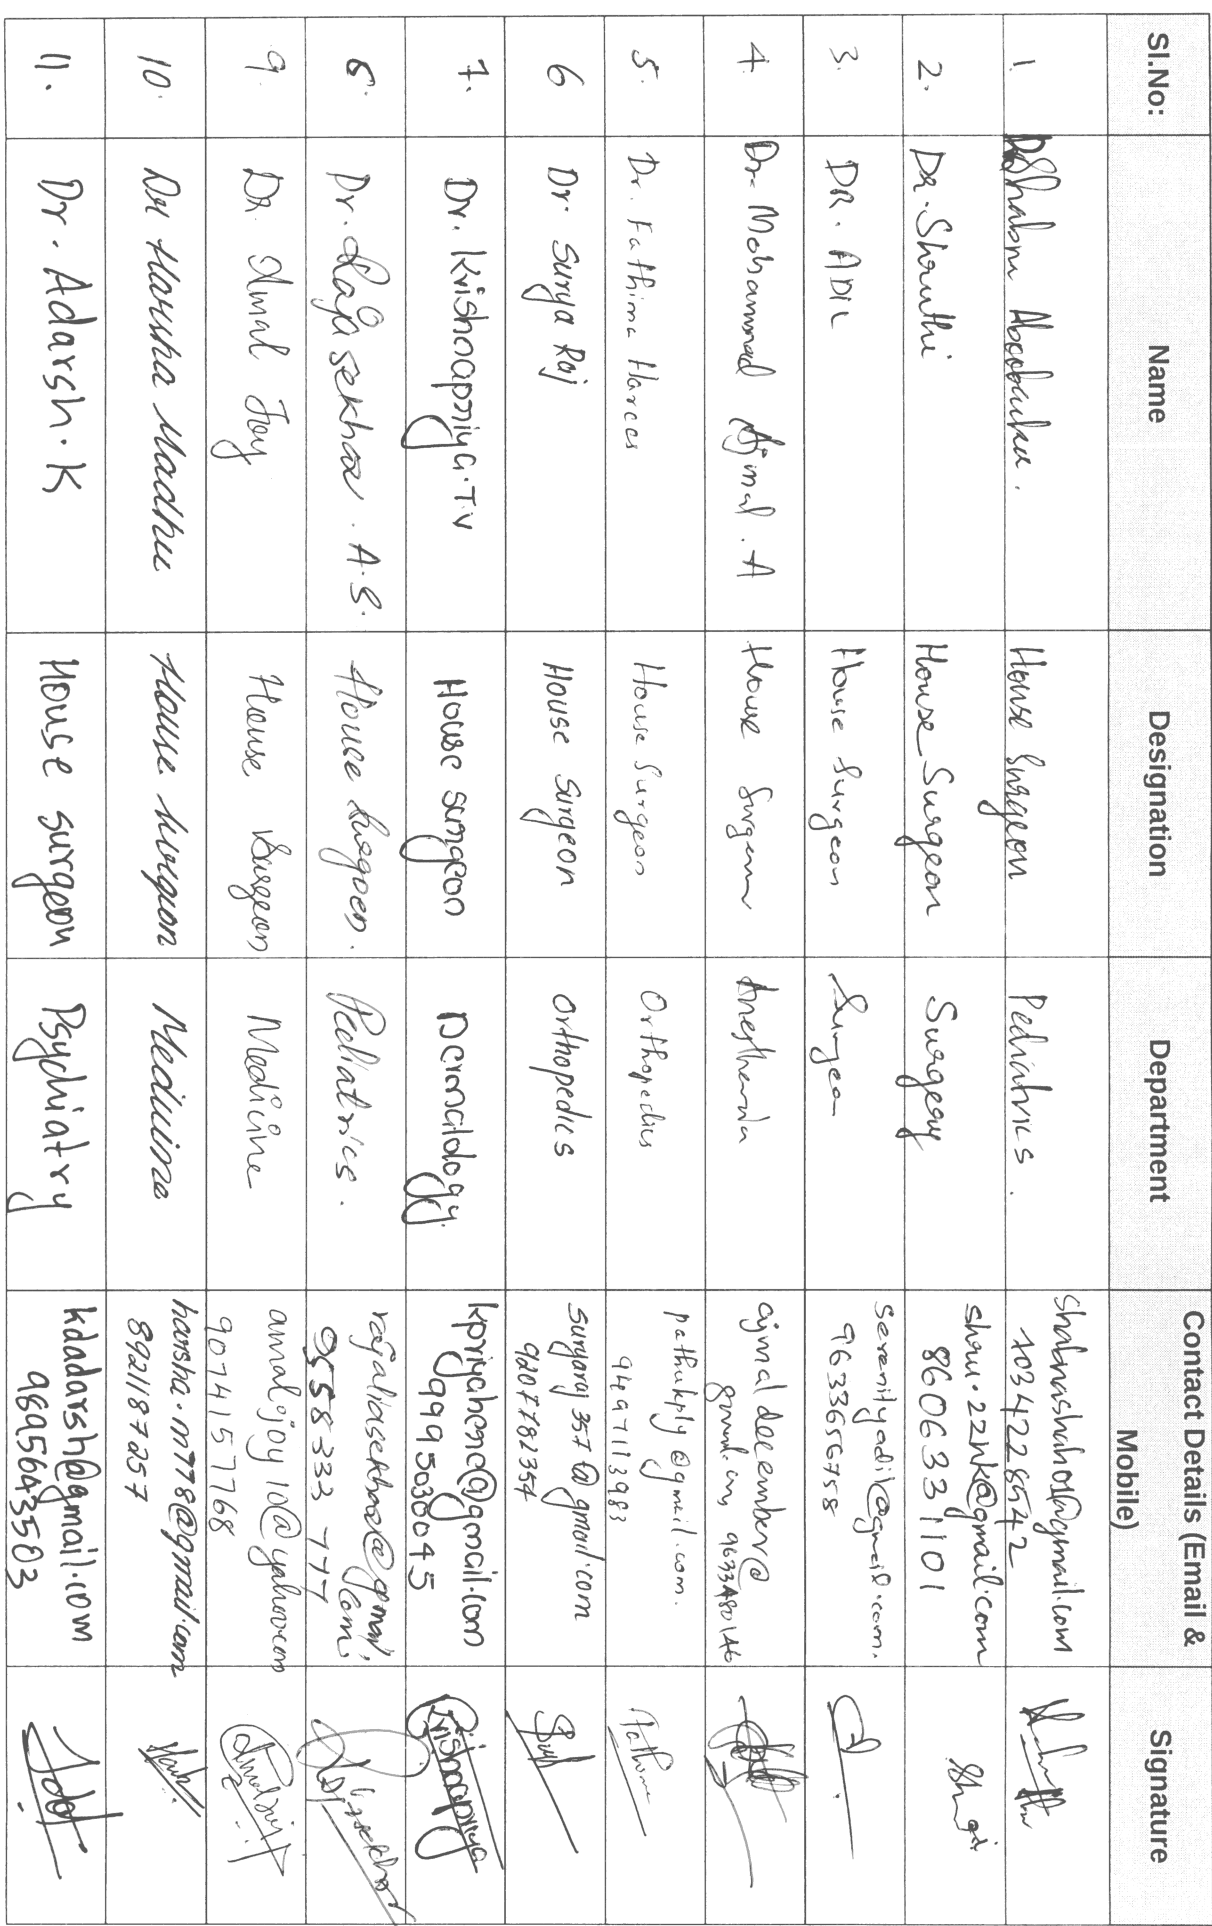 Sl.No: Name Designation Department Contact Details (Email & Mobile) Signature
1. Dr Shabna Aboobacker. House Surgeon Pediatrics. Shabnashah01@gmail.com
2. DR. Shruthi House Surgeon Surgery shru.22nk@gmail.com
8606331101
3. DR. ADIL House Surgeon serenityadil@gmail.com.
9633656758
4. Dr. Mohammad Ajmal. A House Surgeon Anesthesia ajmaldecember@
gmail.com 9633480146
5. Dr. Fathima Harees House Surgeon Orthopedics pathukply@gmail.com.
9497113983
6 Dr. Surya Raj House Surgeon Orthopedics suryaraj357@gmail.com
9207782354
7. Dr. Krishnapriya.T.V House surgeon Dermatology. kpriyachese@gmail.com
9995030045 Krishnapriya
8. Dr. Rajasekhar. A.S. House Surgeon. Pediatrics.
9558333777 Rajasekhar
9. Dr. Amal Joy House Surgeon Medicine amalejoy10@yahoo.com
9074157768
10. Dr Harsha Madhu House surgeon Medicine harsha.m778@gmail.com
8921187257
11. Dr. Adarsh. K House surgeon Psychiatry kdadarsh@gmail.com
9895643503